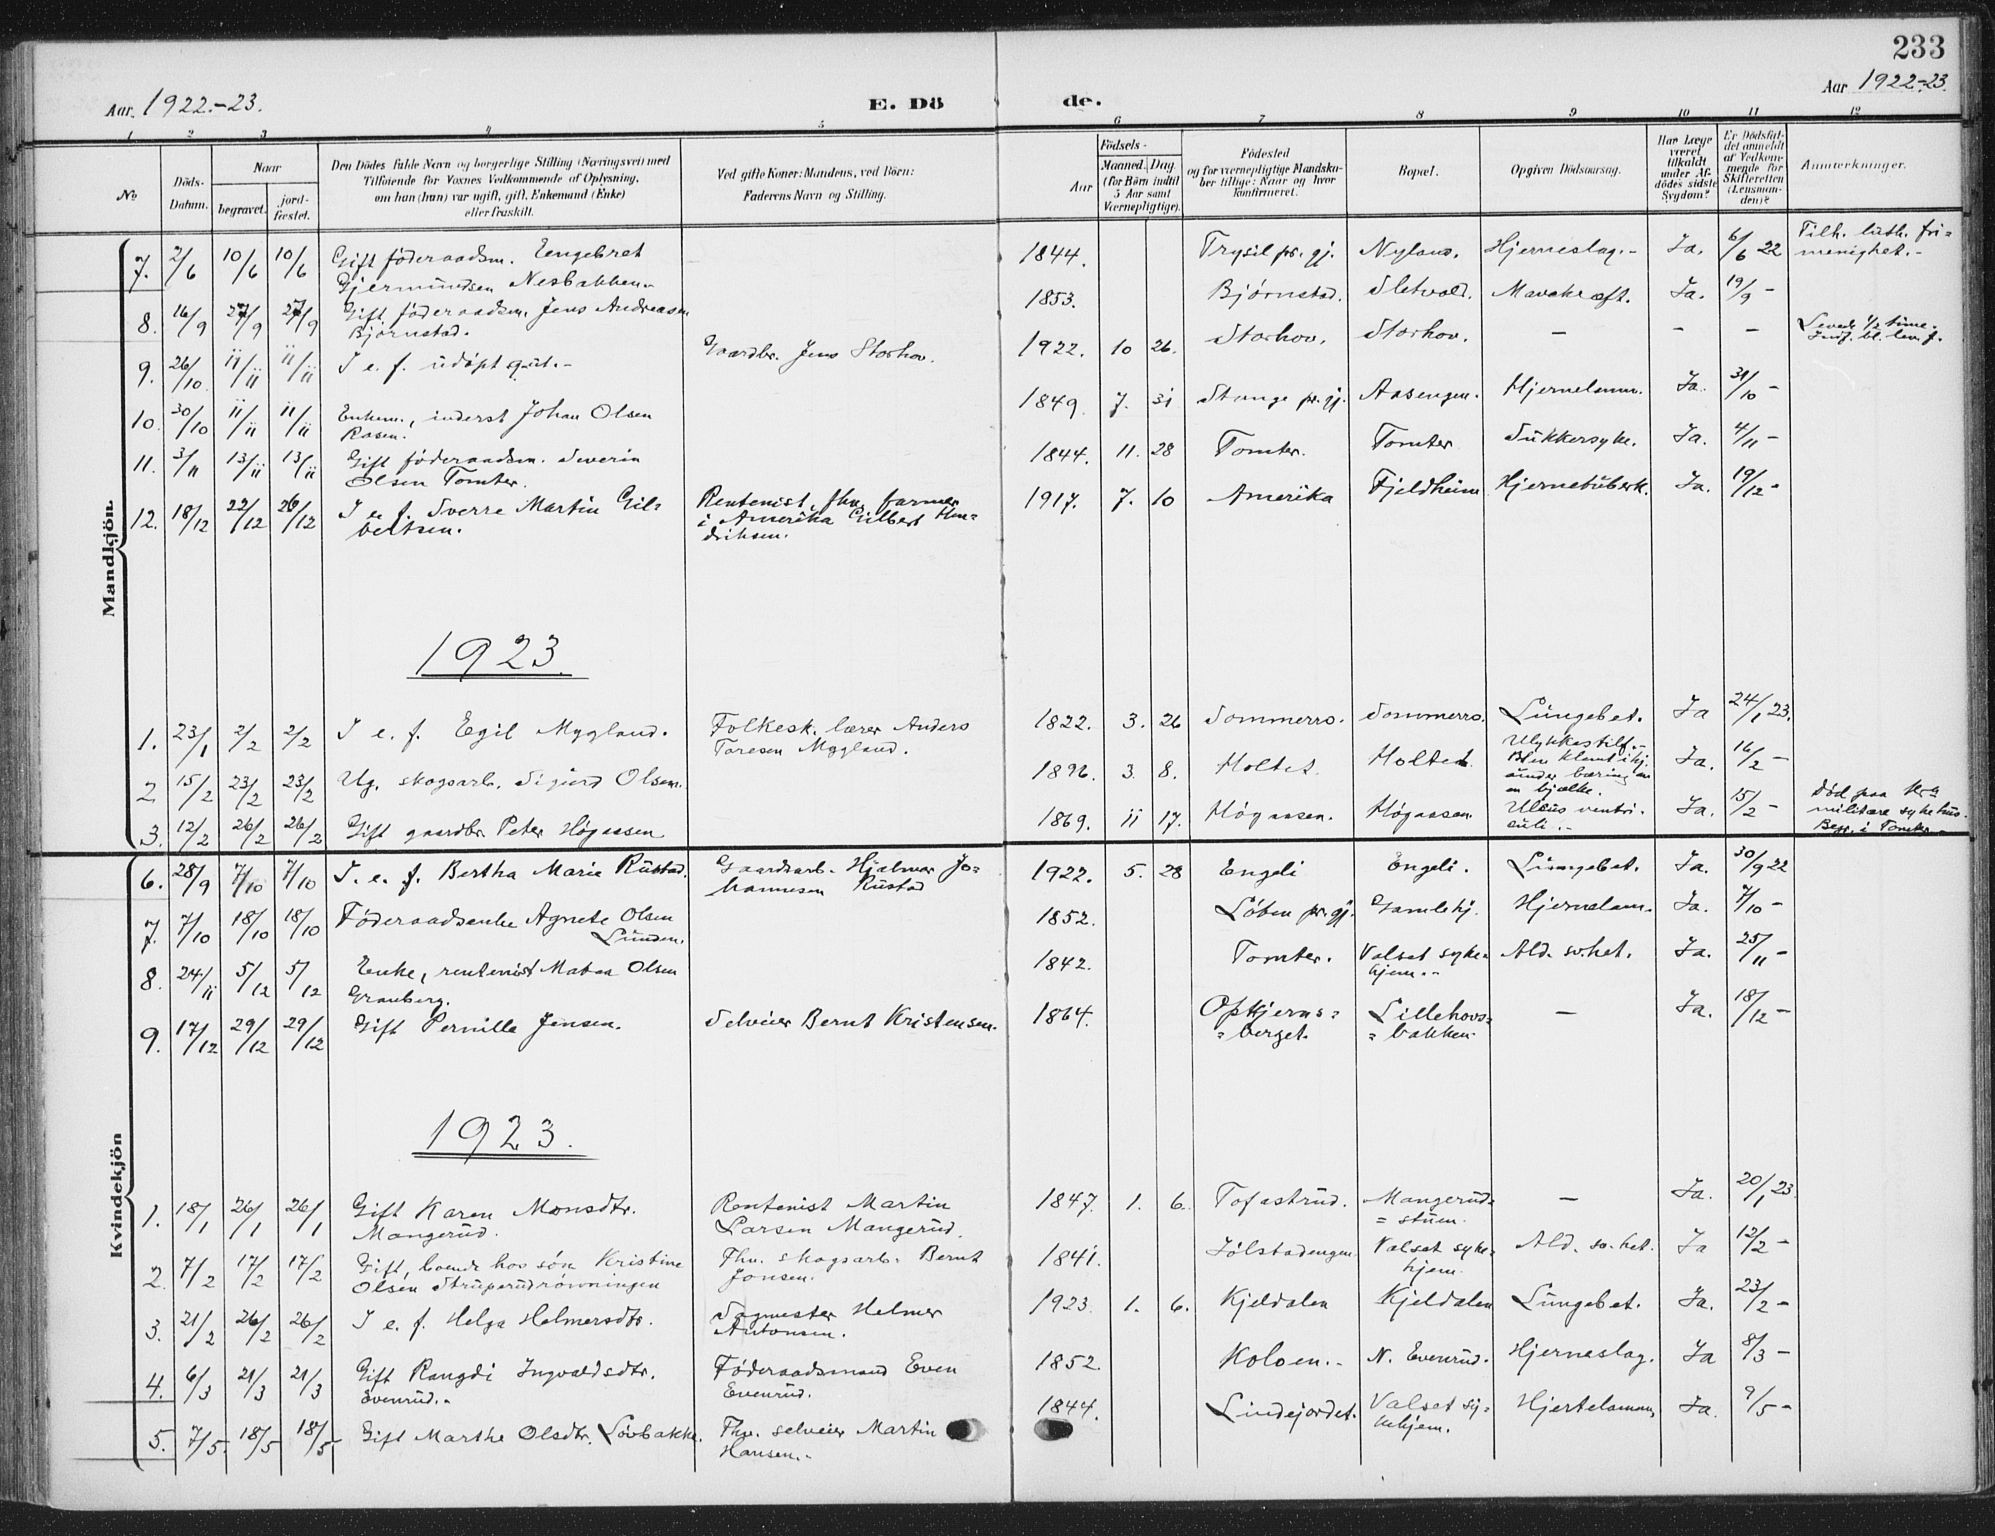 233
Aar. 1922.-23.
E. Dö
de.
Aar 1922-23.
1 2 3 4 5 6 7 8 9 10 11 12
No
Döds-
Datum.
Naar
begravet.
jord-
fæstet.
Den Dödes fulde Navn og borgerlige Stilling (Næringsvei) med
Tilföiende for Voxnes Vedkommende af Oplysning,
om han (hun) var ugift, gift, Enkemand (Enke)
eller fraskilt.
Ved gifte Koner: Mandens, ved Börn:
Faderens Navn og Stilling.
Födsels-
Aar
Maaned. Dag.
(for Börn indtil
5 Aar samt
Værnepligtige).
Födested
og for værnepligtige Mandska-
ber tillige: Naar og hvor
konfirmeret.
Bopæl.
Opgiven Dödsaarsag.
Har Læge
været
tilkaldt
under Af-
dödes sidste
Sygdom?
Er Dödsfal-
det anmeldt
af Vedkom-
mende for
Skifteretten
(Lensman-
den)?
Anmærkninger.
Mandkjön.
7. 2/6 10/6 10/6 Gift föderaadsm. Engebret
Gjermundsen Nesbakken.-
1844. Trysil pr. gj. Nyland. Hjerneslag.- Ja. 6/6 22 Tilh. luth. fri=
menighet.-
8. 16/9 27/9 27/9 Gift föderaadsm. Jens Andreasen
Bjørnstad.
1853. Bjørnstad. Sletvold. Mavekræft. Ja. 19/9 -
9. 26/10 11/11 11/11 I e. f. udöpt gut.-
Gaardbr. Jens Storhov.
1922. 10 26. Storhov. Storhov. - - - Levede 1/2 time.
10. 30/10 11/11 11/11 Enkem., inderst Johan Olsen
Rosen.
1849. 7. 31 Stange pr. gj. Aasengen. Hjernelamm. Ja. 31/10 -
11. 3/11 13/11 13/11 Gift föderaadsm. Severin
Olsen Tomter.
1844. 11. 28 Tomter. Tomter. Sukkersyke. Ja. 4/11 -
12. 18/12 22/12 26/12 I e. f. Sverre Martin Gil=
bertsen.
Rentenist, fhv. farmer
i Amerika Gilbert Hen=
driksen.
1917. 7. 10 Amerika Fjeldheim Hjernetuberk. Ja. 19/12 -
1923.
1. 23/1 2/2 2/2 I e. f. Egil Mygland.
Folkesk. lærer Anders
Toresen Mygland.
1822. 3. 26 Sommerro. Sommerro. Lungebet. Ja 24/1 23.
2 15/2 23/2 23/2 Ug. skogsarb. Sigurd Olsen.
1896. 3. 8. Holtet. Holtet. Ulykkestilf.-
Blev klemt ihj.
under bæring av
en bjælke.
Ja. 16/2 -
3. 12/2 26/2 26/2 Gift gaardbr. Peter Högaasen
1869. 11 17. Högaasen. Högaasen. Ulcus ventri=
culi.-
Ja. 15/2 - Död paa Kra
militære sykehus.
Begr. i Tomter.-
Kvindekjön
6. 28/9 7/10 7/10 I. e. f. Bertha Marie Rustad.
Gaardsarb. Hjalmar Jo=
hannesen Rustad
1922. 5. 28 Engeli Engeli. Lungebet. Ja. 30/9 22
7. 7/10 18/10 18/10 Föderaadsenke Agnete Olsen
Lunden.
1852. Löben pr. gj. Gamlehj. Hjernelam. Ja. 7/10 -
8. 24/11 5/12 5/12 Enke, rentenist Matea Olsen
Granberg.
1842. Tomter. Valset syke=
hjem.-
Ald. sv.het. Ja. 25/11 -
9. 17/12 29/12 29/12 Gift Pernille Jensen.
Selveier Bernt Kristensen.
1864. Opkjerns=
=berget.
Lillehovs=
=bakken.
- Ja. 18/12 -
1923.
1. 18/1 26/1 26/1 Gift Karen Monsdtr.
Mangerud.
Rentenist Martin
Larsen Mangerud.
1847. 1. 6. Tofastrud. Mangerud=
=stuen.
- Ja. 20/1 23.
2. 7/2 17/2 17/2 Gift, boende hos sön Kristine
Olsen Struperudrövningen
Fhv. skogsarb. Bernt
Jonsen.
1841. Jölstadengen Valset syke=
hjem.
Ald. sv. het. Ja 12/2 -
3. 21/2 26/2 26/2 I e. f. Helga Helmersdtr.
Sagmester Helmer
Antonsen.
1923. 1. 6. Kjeldalen Kjeldalen Lungebet. Ja. 23/2 -
4. 6/3 21/3 21/3 Gift Rangdi Ingvaldsdtr.
Evenrud.-
Föderaadsmand Even
Evenrud.
1852. Koloen.- N. Evenrud. Hjerneslag. Ja 8/3 -
5. 7/5 18/5 18/5 Gift Marthe Olsdtr. Lövbakke.
Fhv. selveier Martin
Hansen.-
1844. Lindejordet. Valset sy=
kehjem.
Hjertelamm. Ja. 9/5 -